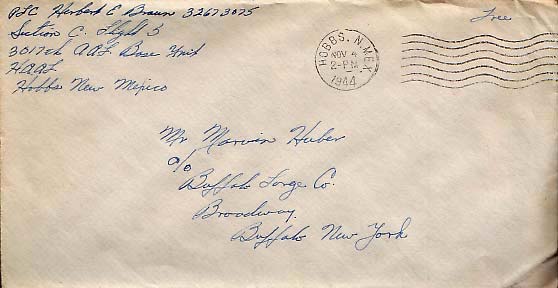 PFC Herbert E Braun 32673075
Free
Section C. Flight 5
3017th AAF Base Unit
HAAF
Hobbs New Mexico
HOBBS, N.MEX.
NOV
2-PM
1944
Mr Marvin Huber
c/o
Buffalo Forge Co.
Broadway.
Buffalo New York